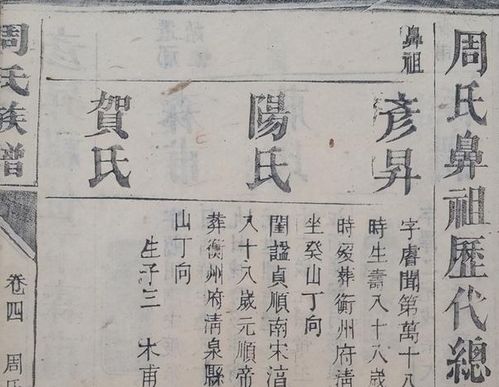 周氏鼻祖歷代總
鼻祖
彥昇
字睿聞第萬十八
時生壽八十八歲
時歿葬衡州府清
坐癸山丁向
陽氏
閨謚貞順南宋淯
八十八歲元順帝
葬衡州府清泉縣
山丁向
賀氏
生子三 木甫
周氏族譜
卷四
周氏